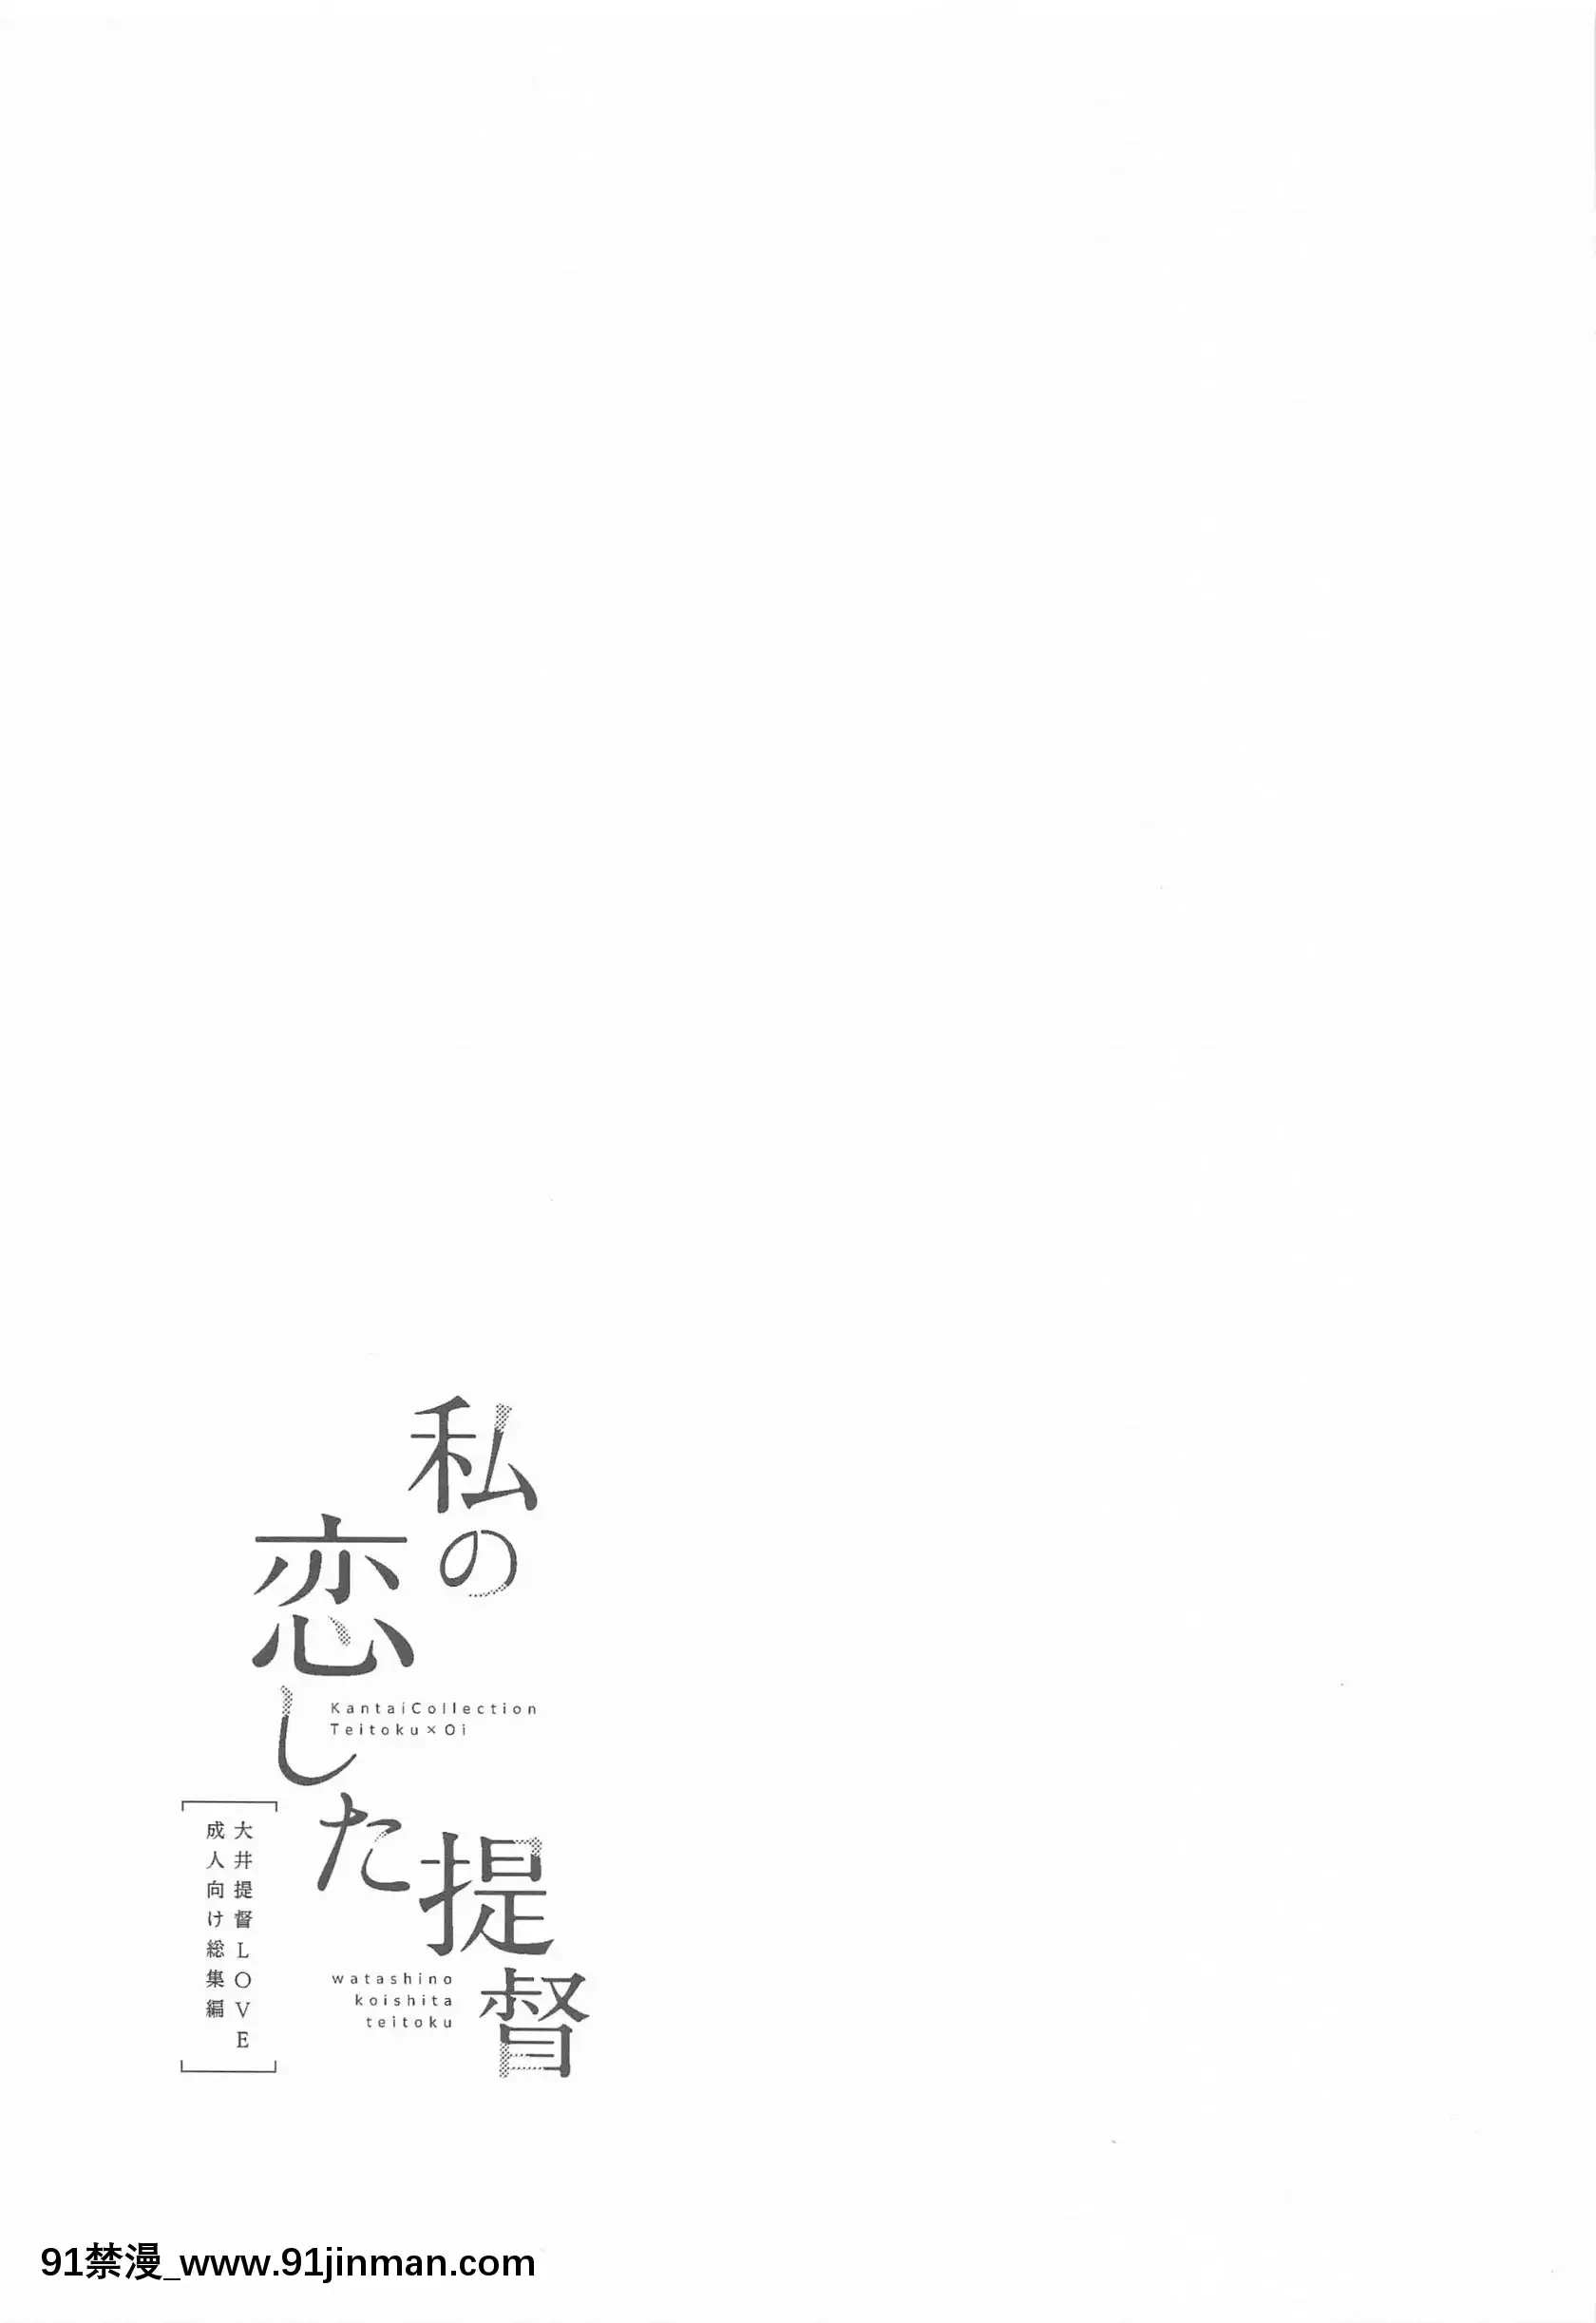 私の
恋した
提督
KantaiCollection
Teitoku×Oi
大井提督LOVE
成人向け総集編
watashino
koishita
teitoku
91禁漫_www.91jinman.com